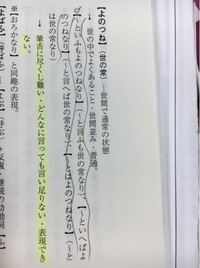 【よのつね】(世の常)…世間で通常の状態
→世の中でよくあること・世間並み・普通。
【〜といへばよのつねなり】(〜と言へば世の常なり)
【〜といふもよのつねなり】(〜と言ふも世の常なり)
【〜とはよのつねなり】(〜とは世の常なり)
→筆舌に尽くし難い・どんなに言っても言い足りない・表現できない。
※【おろかなり】と同趣の表現。